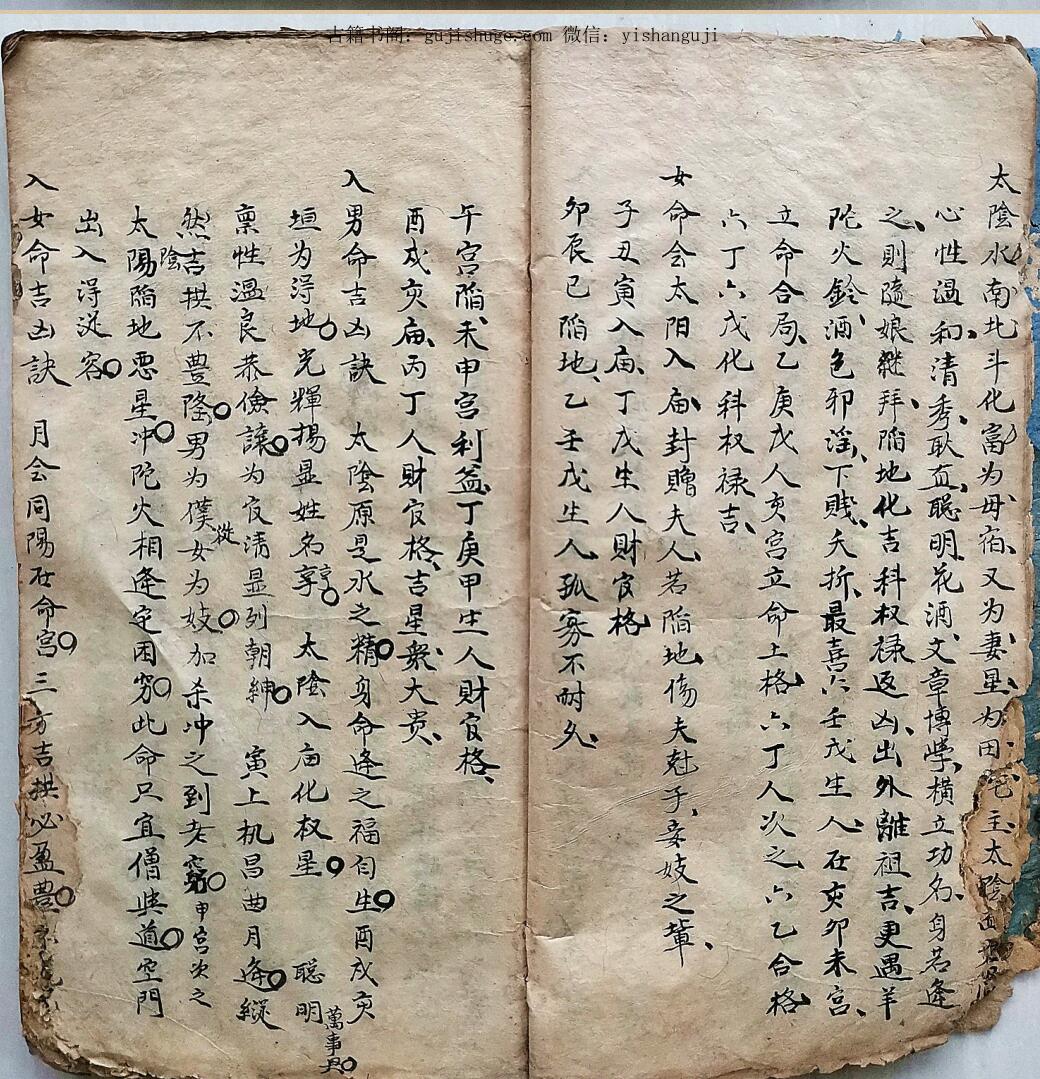 古籍书阁：gujishuge.com 微信：yishanguji
太陰水南北斗化富为毋宿、又为妻星、为田宅主、太陰
心性温和、清秀、耿直、聪明、花酒、文章博學、橫立功名、身若逢
之、則隨娘継拜、陷地化吉科权禄返凶、出外離祖吉、更遇羊
陀火鈴、酒色邪淫、下賎、夭折、最喜六壬戊生人、在亥卯未宫、
立命合局、乙庚戊人亥宫立命上格、六丁人次之、六乙合格
六丁六戊化科权禄吉、
女命会太阳入庙、封贈夫人、若陷地、傷夫尅子、妾妓之輩、
子丑寅入庙、丁戊生人財官格
卯辰巳陷地、乙壬戊生人孤寡不耐久、
午宫陷、未申宫利益、丁庚甲生人財官格、
酉戌亥庙、丙丁人財官格、吉星衆、大贵、
入男命吉凶訣 太陰原是水之精 身命逢之福自生 酉戌亥
垣为得地 光輝揚显姓名享亨 太陰入庙化权星 聪明萬事
禀性溫良恭儉讓 为官清显列朝紳 寅上机昌曲月逢 縱
然吉拱不豊隆 男为僕從女为妓 加杀冲之到老窮 申宫次之
太陽陰陷地恶星冲 陀火相逢定困穷 此命只宜僧與道 空門
出入得従容
入女命吉凶訣 月会同陽在命宫 三方吉拱必盈豊